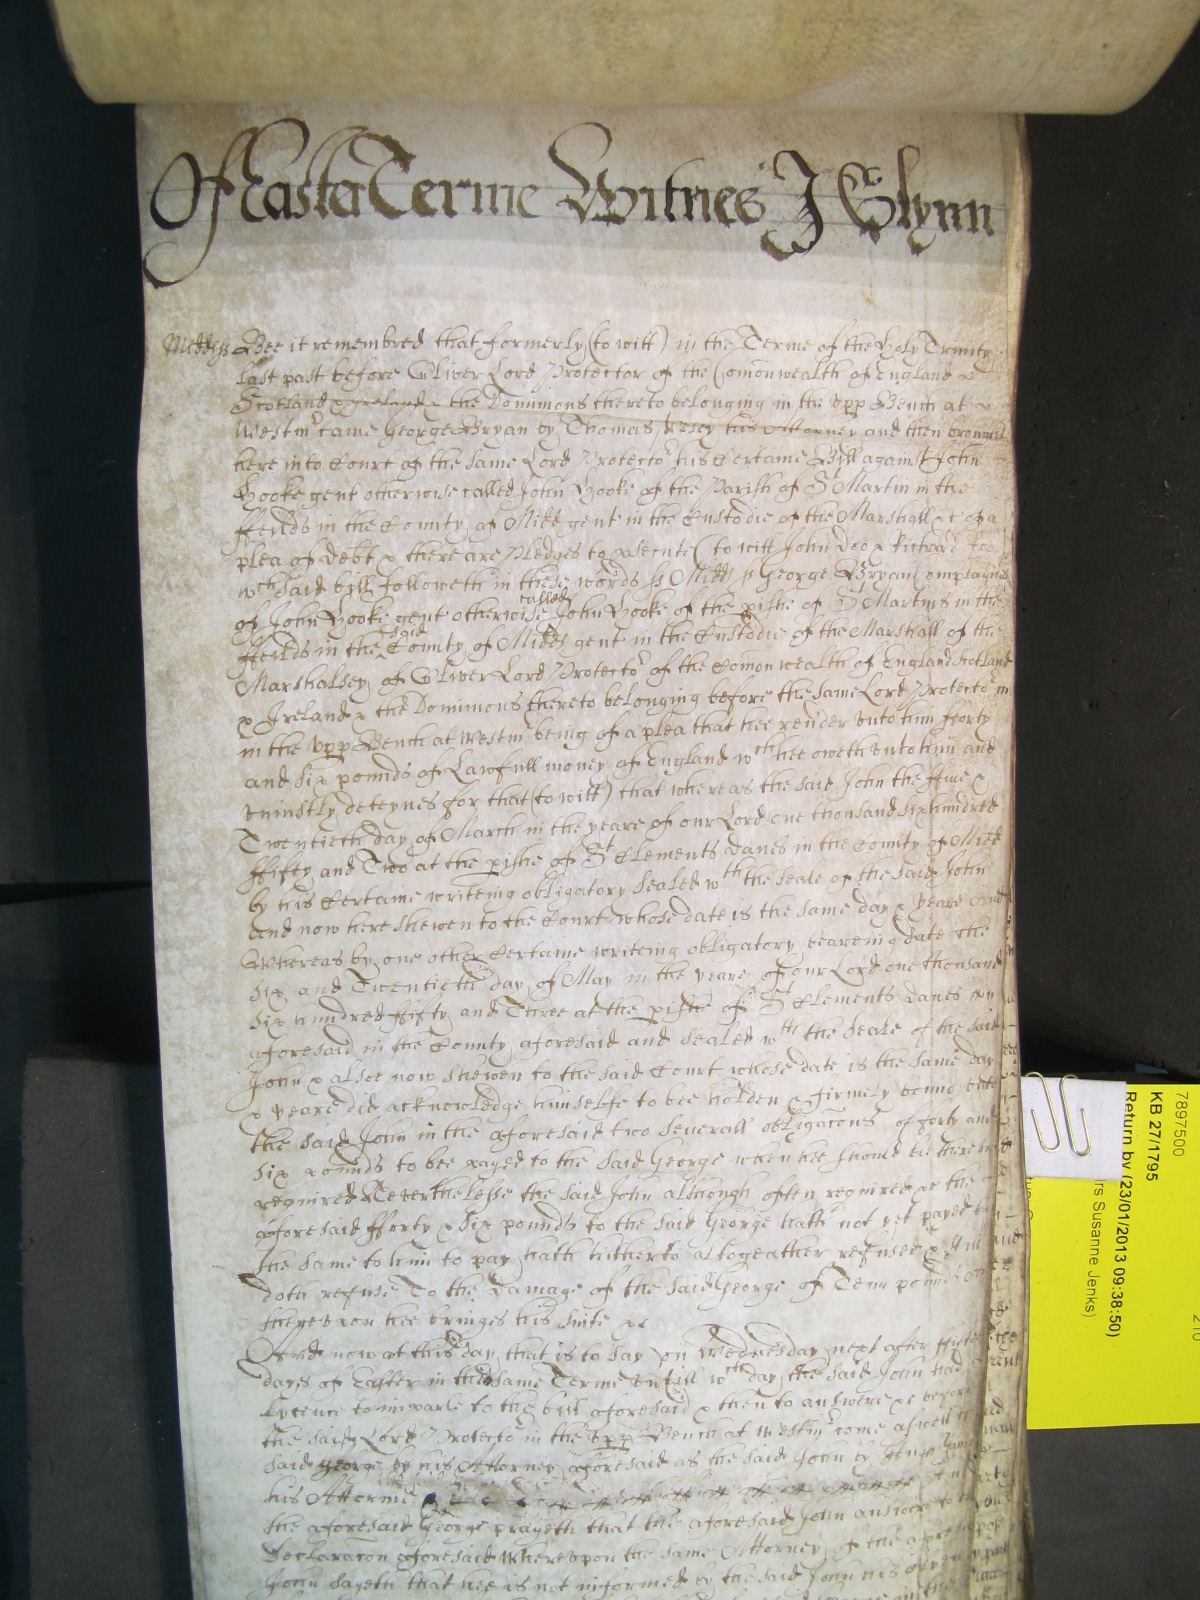 Of Easter Terme Witnes J Glynn
Midds ss Bee it remembred that formerly (to witt) in the Terme of the Holy Trinity
last past before Oliver Lord Protector of the Comonwealth of England &
Scotland & Ireland & the Dominions thereto belonging in the upp Bench at
Westmr came George Bryan by Thomas his Attorney and then brought
here into Court of the same Lord Protector his Certaine Bill against John
Hooke gent otherwise called John Hooke of the Parish of St Martin in the
ffeilds in the County of Midd gent in the Custodie of the Marshall &c of a
plea of debt & there are Pledges to psecute (to witt John Doo & Richard Roo
wch said bill followeth in these words ss Midds ss George Bryan Complaynes
of John Hooke gent otherwise called John Hooke of the pishe of St Martins in the
ffeilds in the said County of Midds gent in the Custodie of the Marshall of the
Marshalsey of Oliver Lord Protector of the Comonwealth of England Scotland
& Ireland & the Dominions thereto belonging before the same Lord Protector
in the upp Bench at Westmr being of a plea that hee render unto him fforty
and six pounds of Lawfull money of England wch hee oweth unto him and
uniustly deteynes for that (to witt) that whereas the said John the ffive &
Twentieth day of March in the yeare of our Lord one thousand six hundred
ffifty and Two at the pishe of St Clements Danes in the County of Midd
by his Certaine writeing obligatory sealed wth the seale of the said John
and now here shewen to the Court whose date is the same day & yeare And
Whereas by one other Certaine writeing obligatory beareing date the
six and Twentieth day of May in the yeare of our Lord one thousand
six hundred ffifty and Three at the pishe of St Clements Danes
aforesaid in the County aforesaid and sealed wth the seale of the said
John & alsoe now shewen to the said Court whose date is the same day
& yeare did acknowledge himselfe to bee holden & firmely bound unto
the said John in the aforesaid two severall obligacons of forty and
six pounds to bee payed to the said George when hee should bee thereunto
required Neverthelesse the said John although often required &c the
aforesaid fforty & six pounds to the said George hath not yet payed but
the same to him to pay hath hitherto altogeather refused & still
doth refuse To the damage of the said George of Tenn pounds
thereupon hee bringes his suite &c
And now at this day that is to say on Wednesday next after ffifteene
dayes of Easter in this same Terme untill wch day the said John had
lycence to imparle to the bill aforesaid & then to answere &c before
the said Lord Protector in the upp Bench at Westmr come aswell the
said George by his Attorney aforesaid as the said John by
his Attorne
the aforesaid George prayeth that the aforesaid John answere to the
declaracon aforesaid whereupon the same Attorney of the aforesaid
John sayeth that hee is not informed by the said John his
7897500
KB 27/1795
Return by (23/01/2013 09:38:50)
rs Susanne Jenks)
210